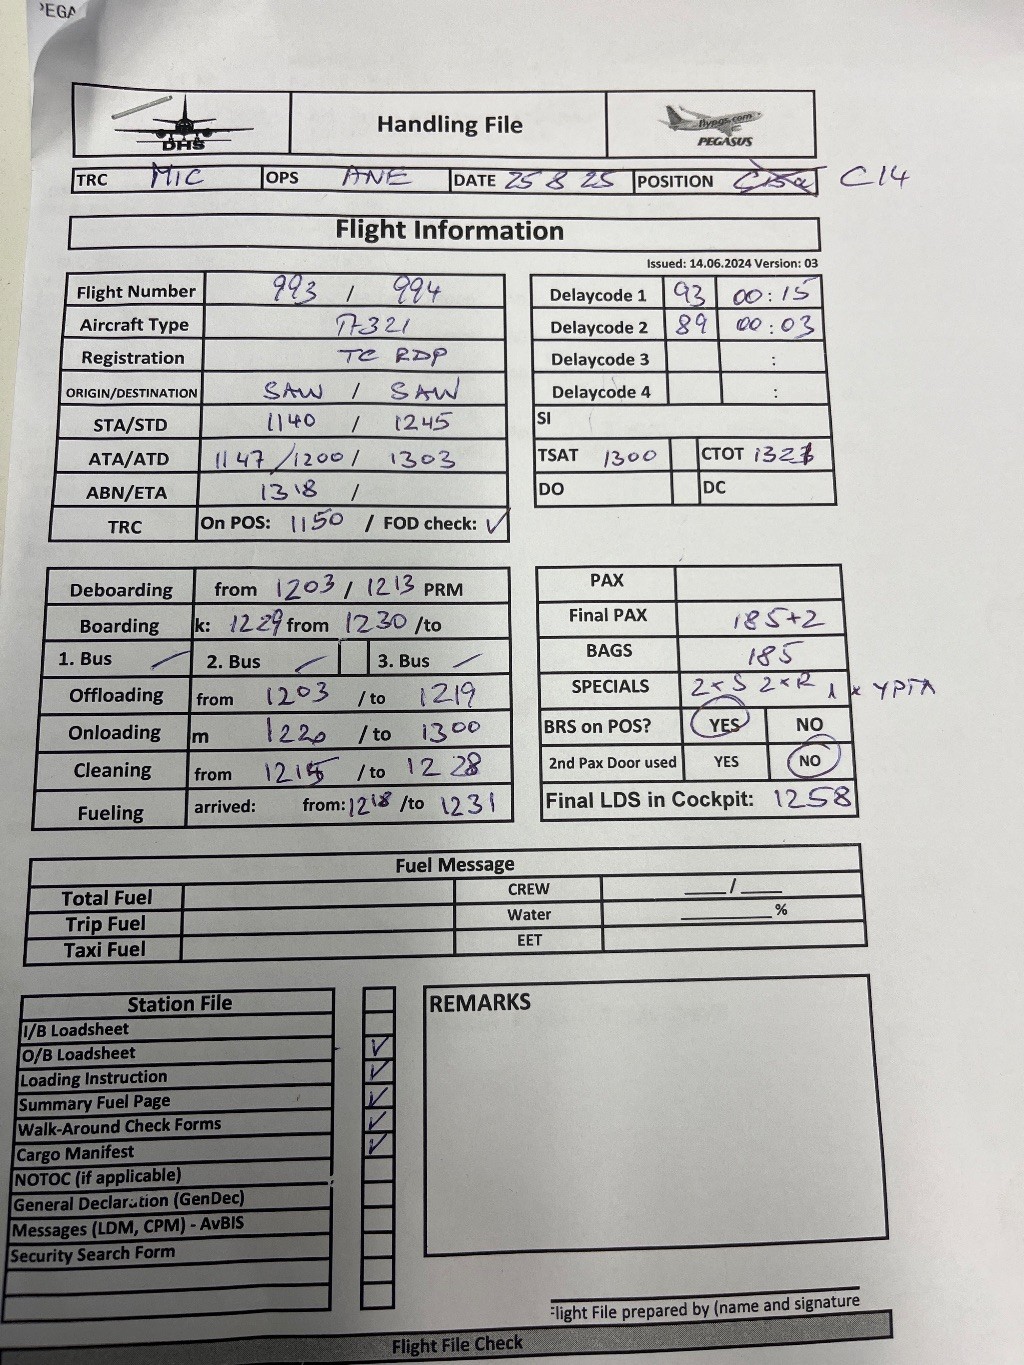 PEGA
DHS
Handling File
flypgs.com
PEGASUS
TRC MIC OPS ANE DATE 25 8 25 POSITION C15a C14
Flight Information
Issued: 14.06.2024 Version: 03
Flight Number 993 / 994
Aircraft Type A321
Registration TC RDP
ORIGIN/DESTINATION SAW / SAW
STA/STD 1140 / 1245
ATA/ATD 1147 /1200/ 1303
ABN/ETA 1318 /
TRC On POS: 1150 / FOD check: ✓
Delaycode 1 93 00:15
Delaycode 2 89 00:03
Delaycode 3 :
Delaycode 4 :
SI
TSAT 1300 CTOT
DO DC
Deboarding from 1203 / 1213 PRM
Boarding k: 1229 from 1230 /to
1. Bus 2. Bus 3. Bus
Offloading from 1203 / to 1219
Onloading m 1220 / to 1300
Cleaning from 1215 / to 1228
Fueling arrived: from: 1218 /to 1231
PAX
Final PAX 185+2
BAGS 185
SPECIALS 2xS 2xR 1x YPTA
BRS on POS? YES NO
2nd Pax Door used YES NO
Final LDS in Cockpit: 1258
Fuel Message
Total Fuel CREW ___/___
Trip Fuel Water ______%
Taxi Fuel EET
Station File
I/B Loadsheet
O/B Loadsheet ✓
Loading Instruction ✓
Summary Fuel Page ✓
Walk-Around Check Forms ✓
Cargo Manifest ✓
NOTOC (if applicable)
General Declaration (GenDec)
Messages (LDM, CPM) - AvBIS
Security Search Form
REMARKS
Flight File prepared by (name and signature
Flight File Check